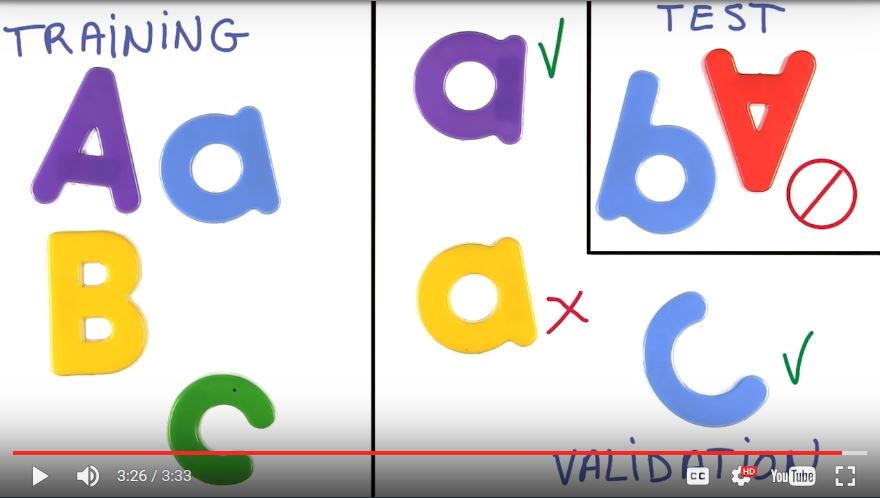 TRAINING
A a
B
c
a
a
TEST
b A
c
VALIDATION
3:26 / 3:33
CC
HD
YouTube